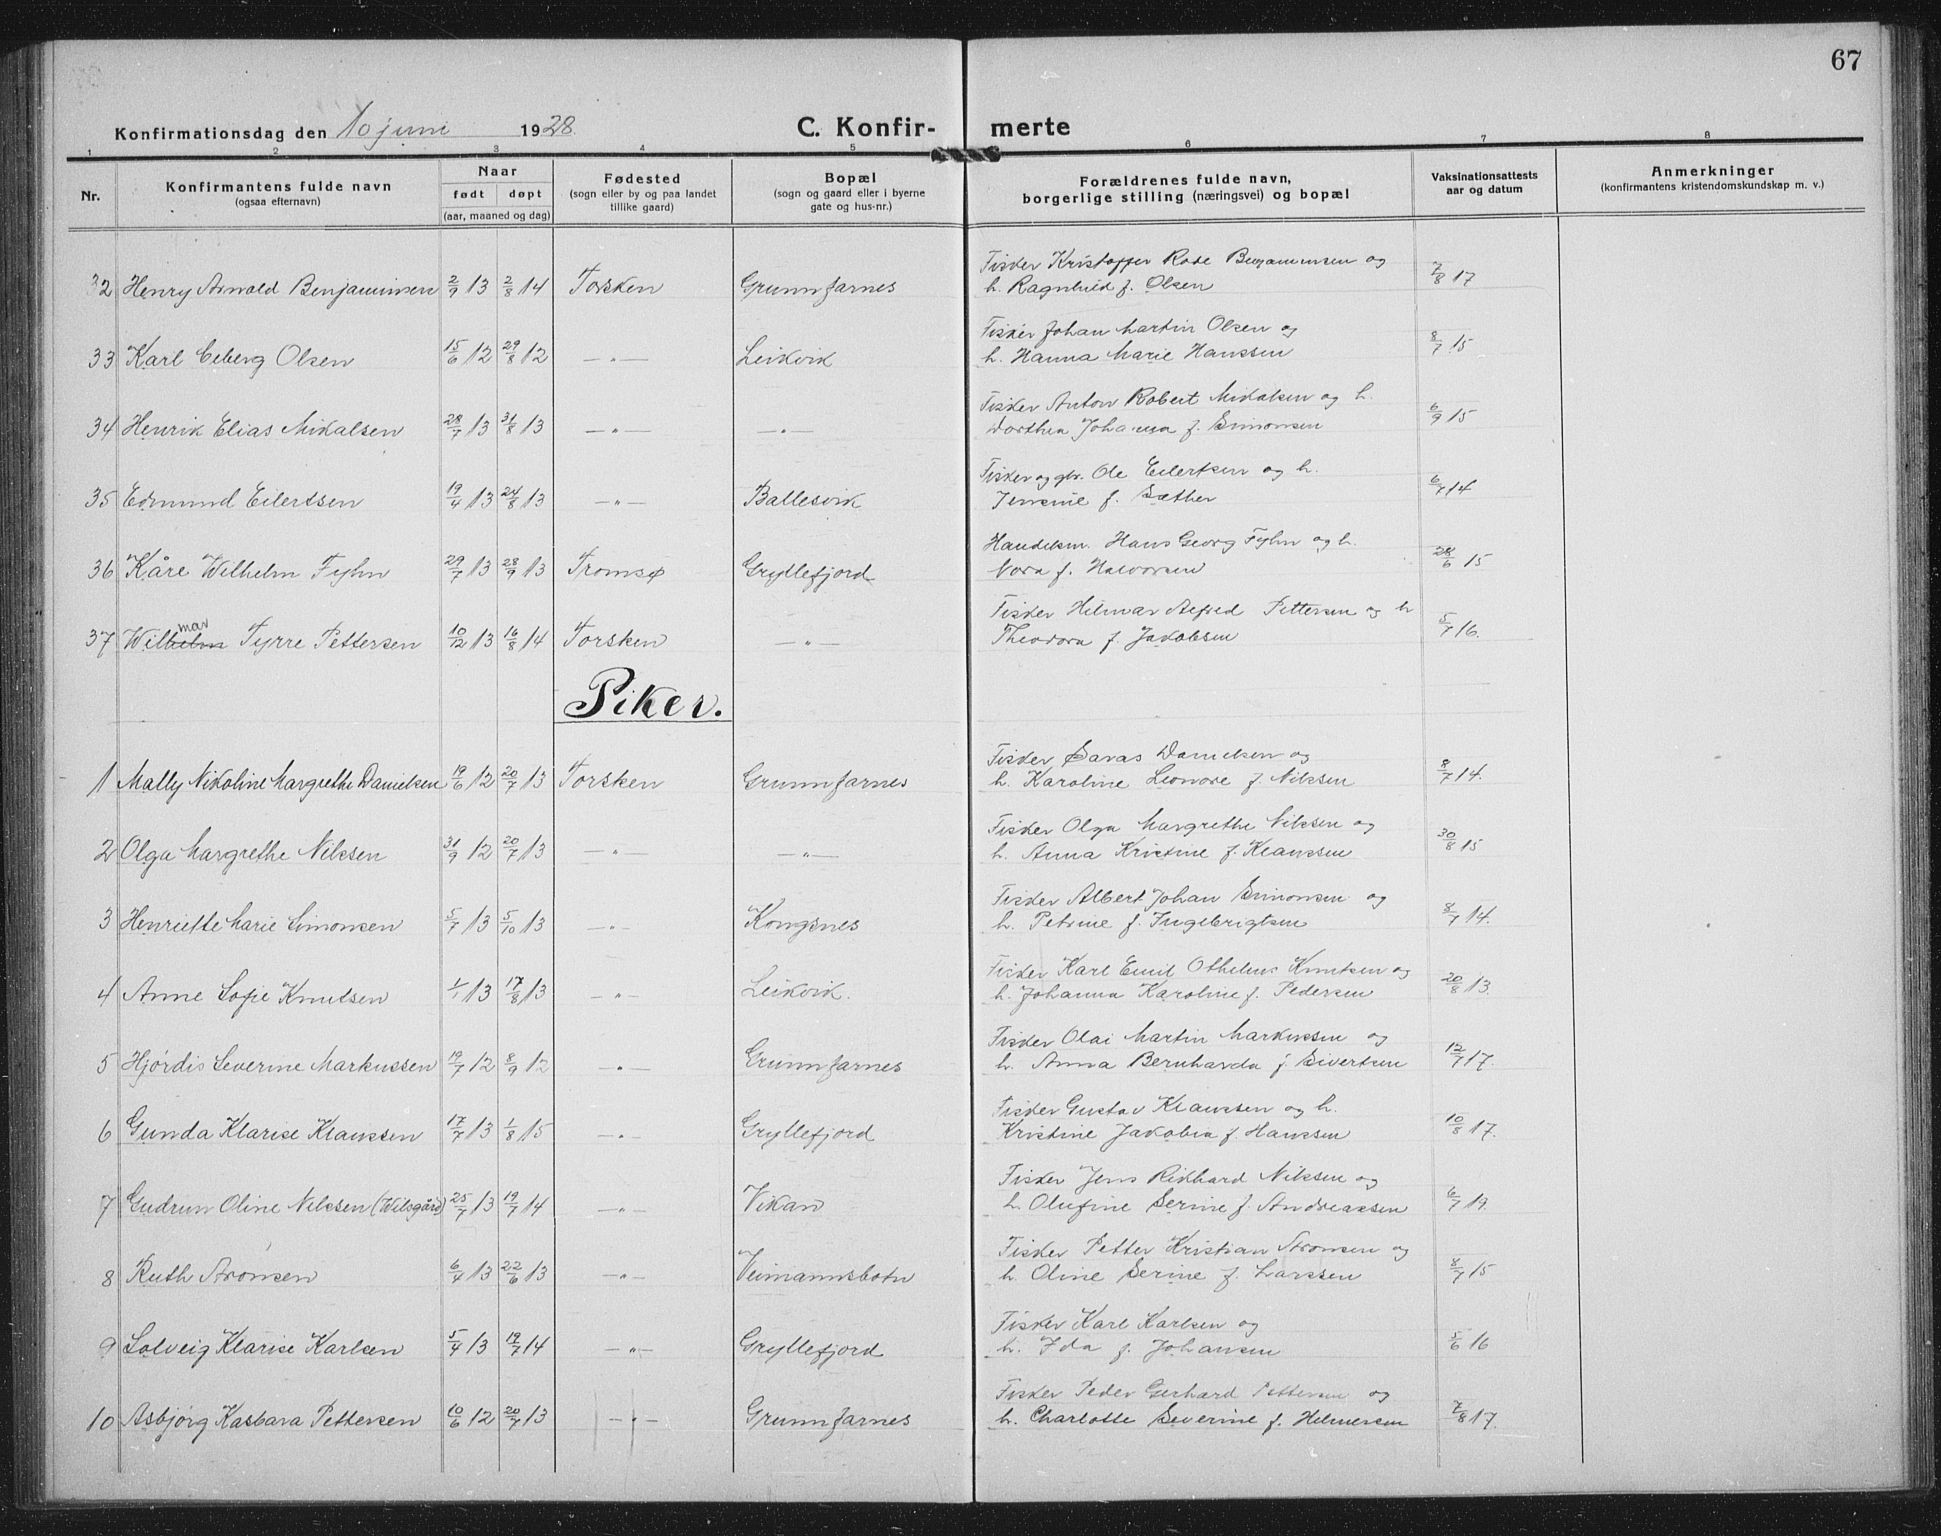 67
Konfirmationsdag den 10 juni 1928. C. Konfir- merte
1 2 3 4 5 6 7 8
Nr. Konfirmantens fulde navn (ogsaa efternavn) Naar født døpt (aar, maaned og dag) Fødested (sogn eller by og paa landet tillike gaard) Bopæl (sogn og gaard eller i byerne gate og hus-nr.) Forældrenes fulde navn, borgerlige stilling (næringsvei) og bopæl Vaksinationsattests aar og datum Anmerkninger (konfirmantens kristendomskundskap m. v.)
Fisker Kristoffer Rode Benjaminsen og
32 Henry Arnold Benjaminsen 2/9 13 2/8 14 Torsken Grunnfarnes h. Ragnhild f. Olsen 7/8 17
Fisker Johan Martin Olsen og
33 Karl Edberg Olsen 15/6 12 29/8 12 — " — Leikvik h. Hanna Marie Hanssen 8/7 15
Fisker Anton Robert Mikalsen og h.
34 Henrik Elias Mikalsen 28/7 13 31/8 13 — " — — " — Dorthea Johanna f. Simonsen 6/9 15
Fisker og gbr. Ole Eilertsen og h.
35 Edmund Eilertsen 19/4 13 24/8 13 — " — Ballesvik Jensine f. Sæther 6/7 14
Handelsm. Hans Georg Fyhn og h.
36 Kåre Wilhelm Fyhn 29/7 13 28/9 13 Tromsø Gryllefjord Nora f. Halvorsen 28/6 15
Fisker Hilmar Alfred Pettersen og h
37 Wilhelm mar Tyrre Pettersen 10/12 13 16/8 14 Torsken — " — Theodora f. Jakobsen 5/7 16.
Piker.
Fisker Savas Danielsen og
1 Mally Nikoline Margrethe Danielsen 19/6 12 20/7 13 Torsken Grunnfarnes h. Karoline Leonore f. Nilsen 8/7 14.
Fisker Olga Margrethe Nilsen og
2 Olga Margrethe Nilsen 31/9 12 20/7 13 — " — — " — h. Anna Kristine f. Klaussen 30/8 15
Fisker Albert Johan Simonsen og
3 Henriette Marie Simonsen 5/7 13 5/10 13 — " — Kongsnes h. Petrine f. Ingebrigtsen 8/7 14.
Fisker Karl Emil Othelius Knutsen og
4 Anne Sofie Knutsen 1/1 13 17/8 13 — " — Leikvik. h. Johanna Karoline f. Pedersen 20/8 13.
Fisker Olai Martin Markussen og
5 Hjørdis Severine Markussen 19/7 12 8/9 12 — " — Grunnfarnes h. Anna Bernharda f. Sivertsen 12/7 17.
Fisker Gustav Klaussen og h.
6 Gunda Klarise Klaussen 17/7 13 1/8 15 — " — Gryllefjord Kristine Jakobia f. Hanssen 10/8 17.
Fisker Jens Rikhard Nilsen og
7 Gudrun Oline Nilsen (Wilsgård) 25/7 13 19/7 14 — " — Vikan h. Olufine Serine f. Andreassen 6/7 19.
Fisker Petter Kristian Aronsen og
8 Ruth Aronsen 6/4 13 22/6 13 — " — Veimannsbotn h. Oline Serine f. Larssen 8/7 15
Fisker Karl Karlsen og
9 Solveig Klarise Karlsen 5/4 13 19/7 14 — " — Gryllefjord h. Ida f. Johansen 5/6 16
Fisker Peder Gerhard Pettersen og
10 Asbjørg Kasbara Pettersen 10/6 12 20/7 13 — " — Grunnfarnes h. Charlotte Severine f. Hilmersen 7/8 17.